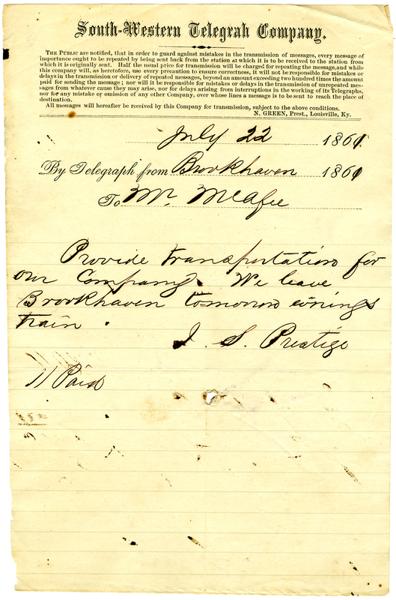 South-Western Telegrah Company.
THE PUBLIC are notified, that in order to guard against mistakes in the transmission of messages, every message of
importance ought to be repeated by being sent back from the station at which it is to be received to the station from
which it is originally sent. Half the usual price for transmission will be charged for repeating the message, and while
this company will, as heretofore, use every precaution to ensure correctness, it will not be responsible for mistakes or
delays in the transmission or delivery of repeated messages, beyond an amount exceeding two hundred times the amount
paid for sending the message; nor will it be responsible for mistakes or delays in the transmission of unrepeated mes-
sages from whatever cause they may arise, nor for delays arising from interruptions in the working of its Telegraphs,
nor for any mistake or omission of any other Company, over whose lines a message is to be sent to reach the place of
destination.
All messages will hereafter be received by this Company for transmission, subject to the above conditions.
N. GREEN, Prest., Louisville, Ky.
July 22 1861.
By Telegraph from Brookhaven 1861
To Mr McAfee
Provide transportation for
our Company. We leave
Brookhaven tomorrow evenings
train.
J. S. Prestige
11 Paid